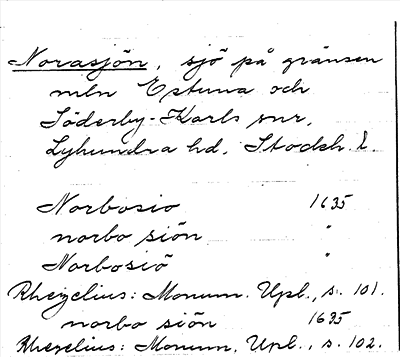 Norasjön, sjö på gränsen
mln Estuna och
Söderby-Karls snr,
Lyhundra hd, Stockh. l.
Norbosio 1635
norbo siön "
Norbosiö "
Rhezelius: Monum. Upl., s. 101.
norbo siön 1635
Rhezelius: Monum. Upl., s. 102.